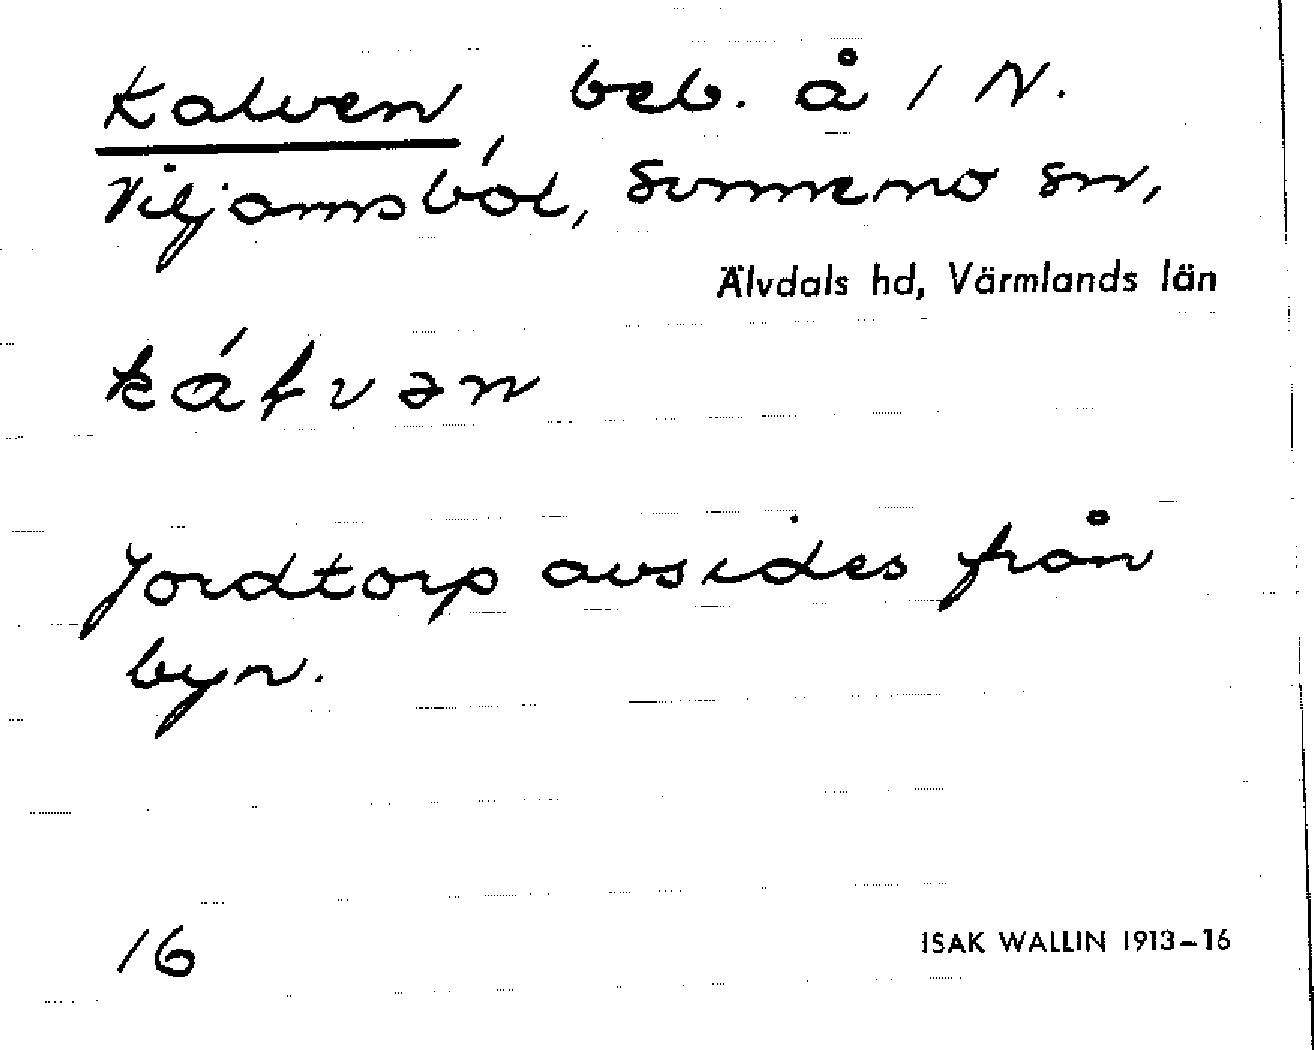 Kalven beb. å 1 N.
Viljamsból, Sunnemo sn,
Älvdals hd, Värmlands län
káƚvən
Jordtorp avsides från
byn.
16
ISAK WALLIN 1913–16